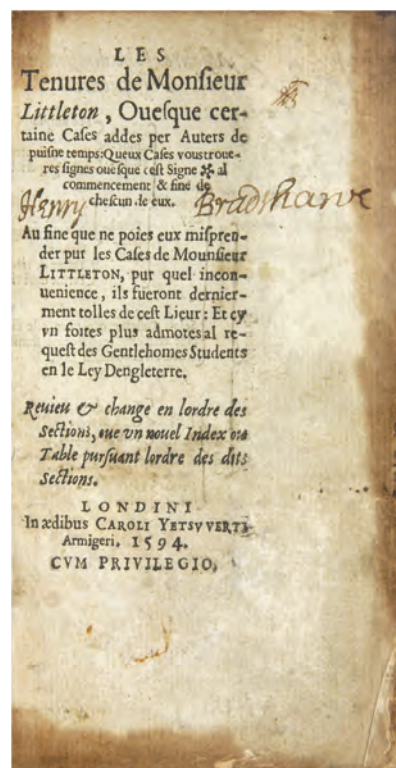 LES
Tenures de Monſieur
Littleton, Oueſque cer-
taine Caſes addes per Auters de
puiſne temps: Queux Caſes voustroue-
res ſignes oueſque ceſt Signe ✠ al
commencement & fine de
Henry cheſcun de eux. Bradshawe
Au fine que ne poies eux miſpren-
der pur les Caſes de Mounſieur
LITTLETON, pur quel incon-
uenience, ils fueront dernier-
ment tolles de ceſt Lieur: Et cy
vn foites plus admotes al re-
queſt des Gentlehomes Students
en le Ley Dengleterre.
Reuieu & change en lordre des
Sections, aue vn nouel Index ou
Table purſuant lordre des dits
Sections.
LONDINI
In ædibus CAROLI YETSVVERTI
Armigeri. 1594.
CVM PRIVILEGIO.